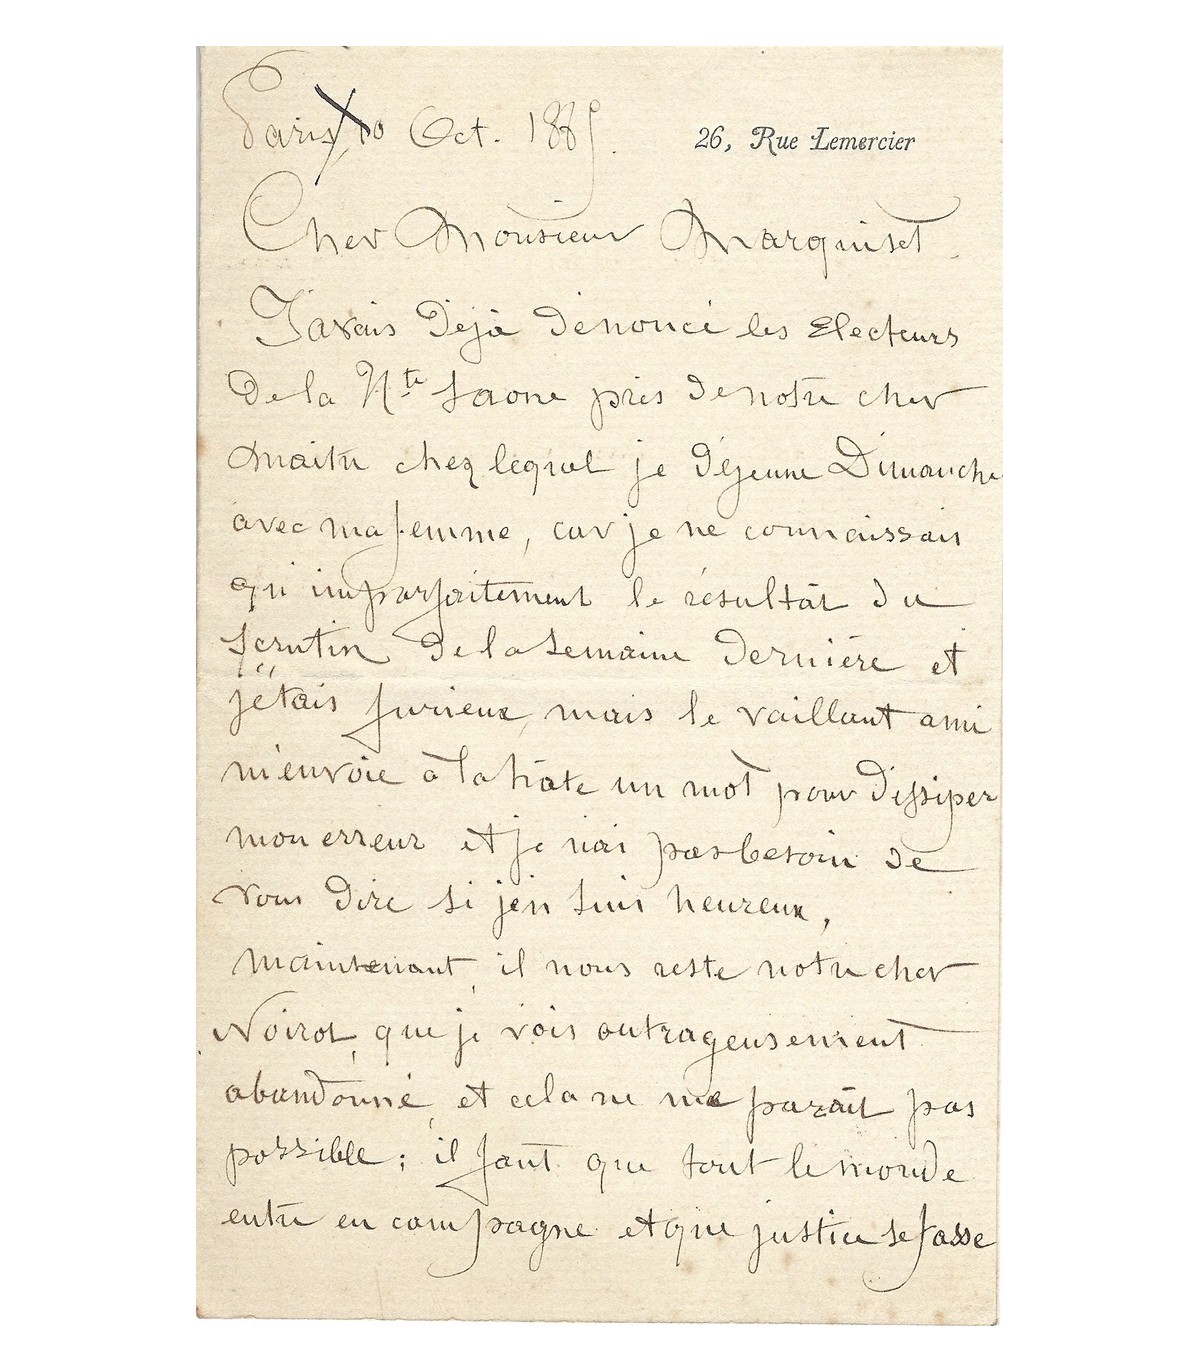 Paris 10 Oct. 1885. 26, Rue Lemercier
Cher Monsieur Marquiset
J'avais déjà dénoncé les Electeurs
de la Hte Saone près de notre cher
maitre chez lequel je déjeune Dimanche
avec ma femme, car je ne connaissais
qu'imparfaitement le résultat du
scrutin de la semaine dernière et
j'étais furieux, mais le vaillant ami
m'envoie à la hâte un mot pour dissiper
mon erreur et je n'ai pas besoin de
vous dire si j'en suis heureux,
maintenant, il nous reste notre cher
Noirot, que je vois outrageusement
abandonné, et cela ne me parait pas
possible ; il faut que tout le monde
entre en campagne et que justice se fasse